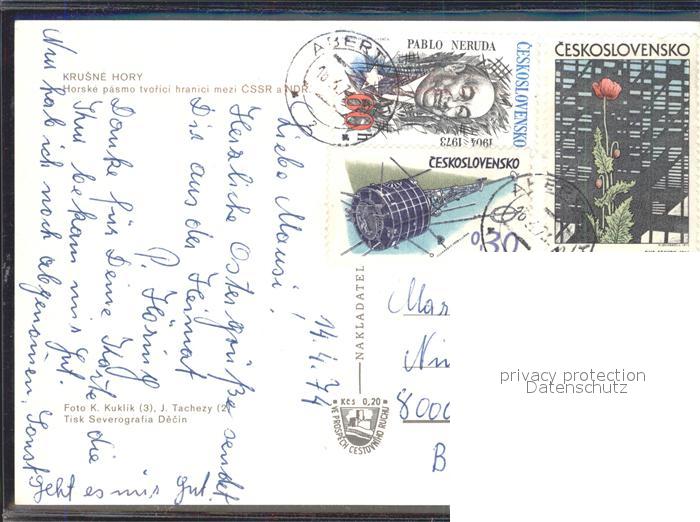 KRUŠNÉ HORY
Horské pásmo tvořící hranici mezi ČSSR a NDR.
14.4.74
Liebe Mausi,
Herzliche Ostergrüße sendet
Dir aus der Heimat
P. Hönig
Danke für Deine Karte die
Nur hab ich noch abgenommen, Sonst
geht es mir gut.
Foto K. Kuklík (3), J. Tachezy (2)
Tisk Severografia Děčín
NAKLADATEL
Kčs 0,20
VE PROSPĚCH CESTOVNÍHO RUCHU
PABLO NERUDA
1904-1973
60h
ČESKOSLOVENSKO
ČESKOSLOVENSKO
0,30
ČESKOSLOVENSKO
Mar
8000
B
privacy protection
Datenschutz